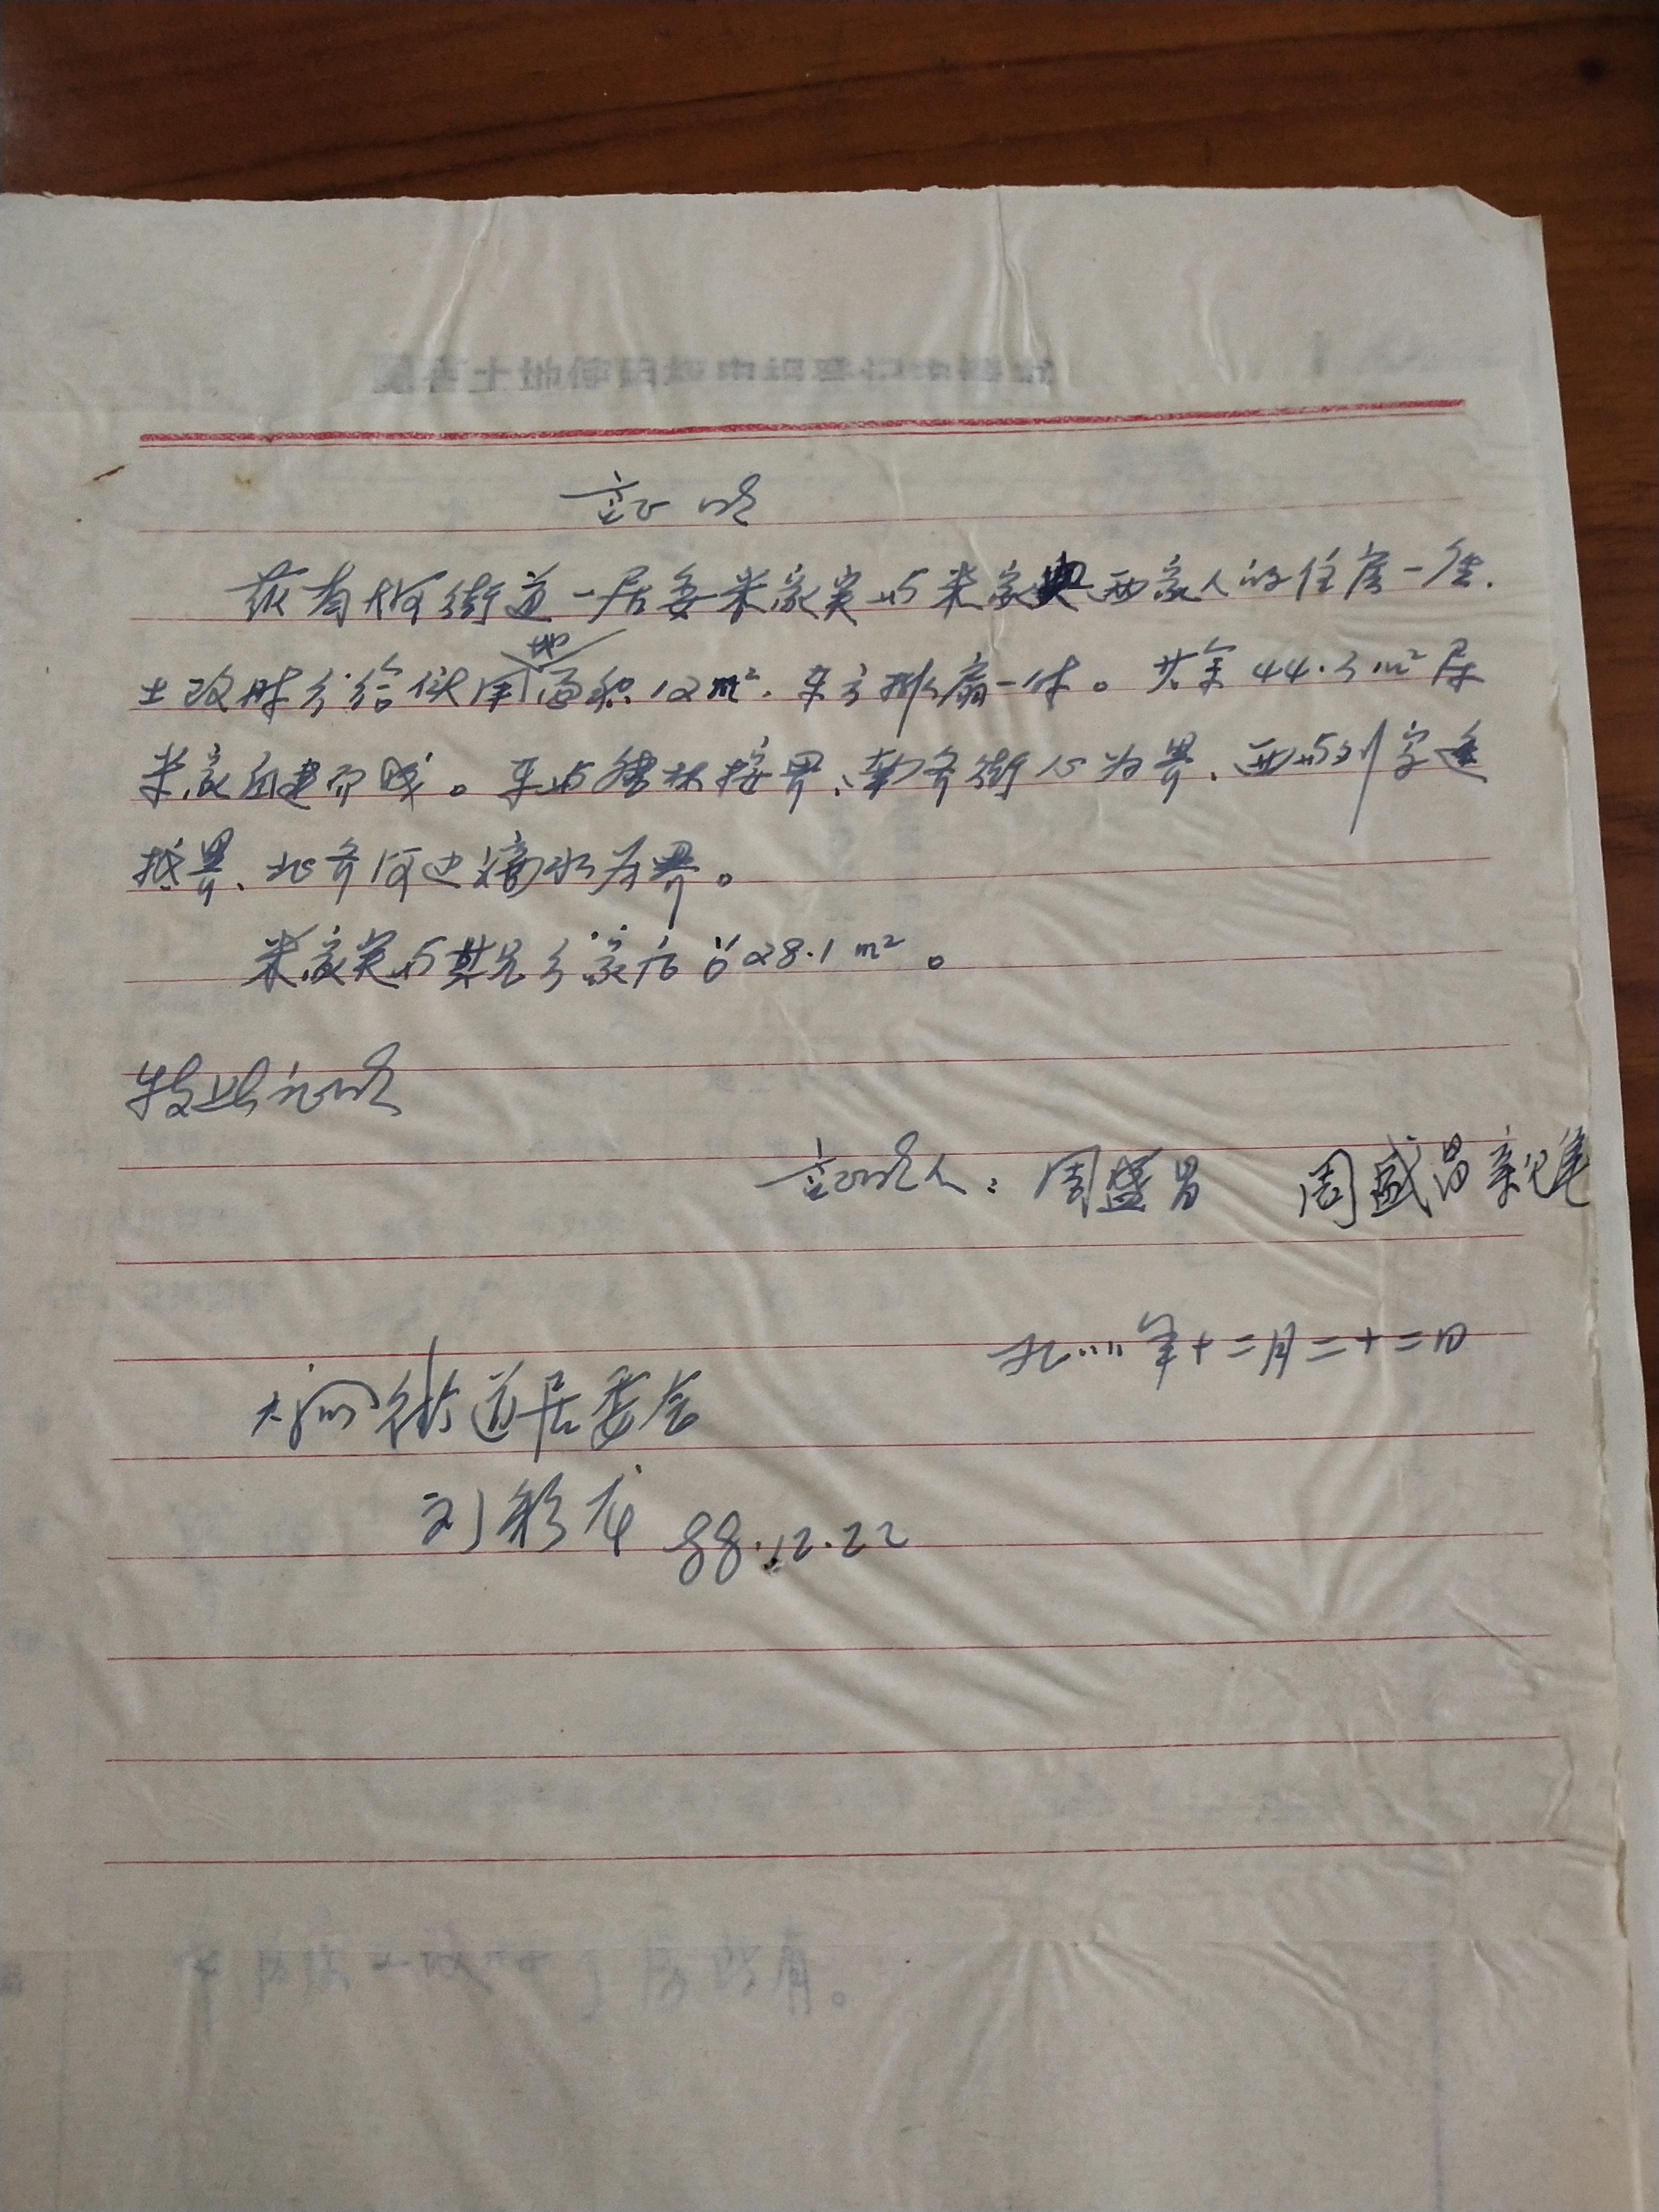 证明
兹有河街道一居委米家寅与米家典两家人的住房一座.
土改时分给伙用地面积12m². 东方排扇一休。其余44.3m²居
米家自建而成。东与 林接界、南齐街心为界、西与刘字连
抵界、北齐河边滴水为界。
米家寅与其兄分家后占28.1m²。
特此证明
证明人: 周盛昌 周盛昌亲笔
一九八八年十二月二十二日
大河街道居委会
刘彩龙 88.12.22